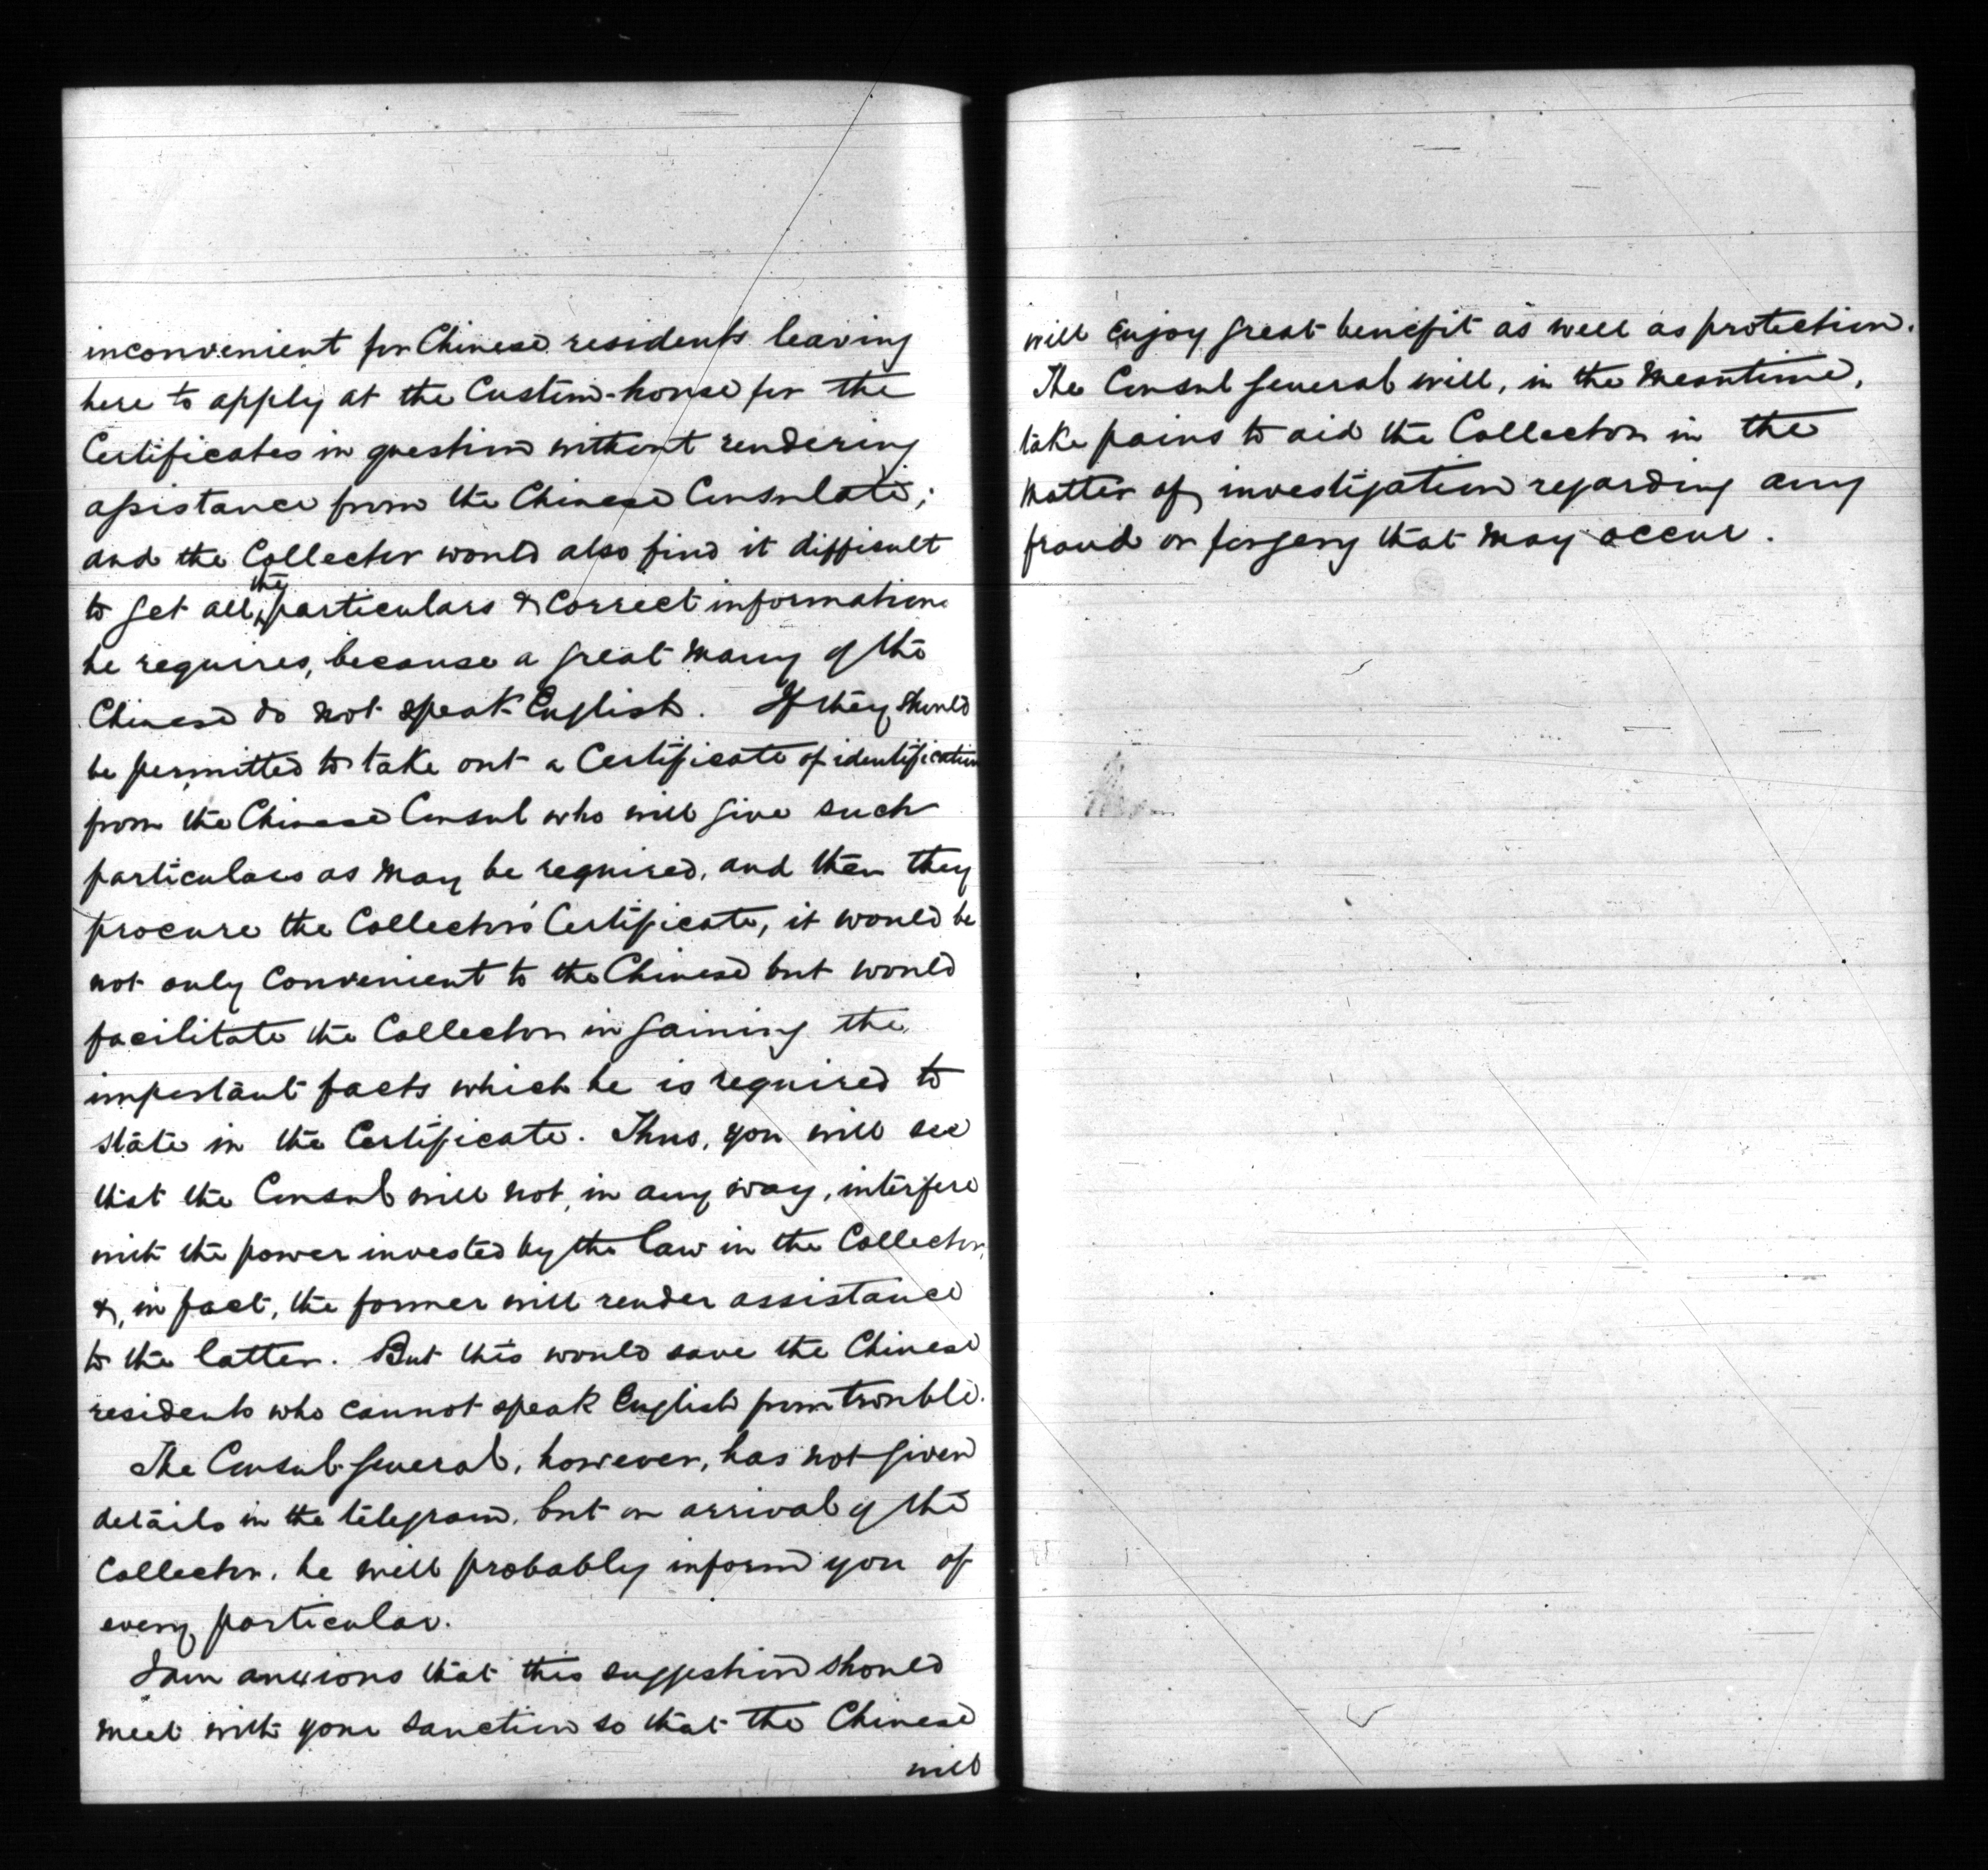 inconvenient for Chinese residents leaving
here to apply at the Custom-house for the
Certificates in question without rendering
assistance from the Chinese Consulate;
and the Collector would also find it difficult
to get all the particulars & correct information
he requires, because a great many of the
Chinese do not speak English. If they should
be permitted to take out a Certificate of identification
from the Chinese Consul who will give such
particulars as may be required, and then they
procure the Collector's Certificate, it would be
not only convenient to the Chinese but would
facilitate the Collector in gaining the
important facts which he is required to
state in the Certificate. Thus, you will see
that the Consul will not, in any way, interfere
with the power invested by the law in the Collector,
&, in fact, the former will render assistance
to the latter. But this would save the Chinese
residents who cannot speak English from trouble.
The Consul-General, however, has not given
details in the telegram, but on arrival of the
Collector, he will probably inform you of
every particular.
I am anxious that this suggestion should
meet with your sanction so that the Chinese
will
will enjoy great benefit as well as protection.
The Consul General will, in the meantime,
take pains to aid the Collector in the
matter of investigation regarding any
fraud or forgery that may occur.